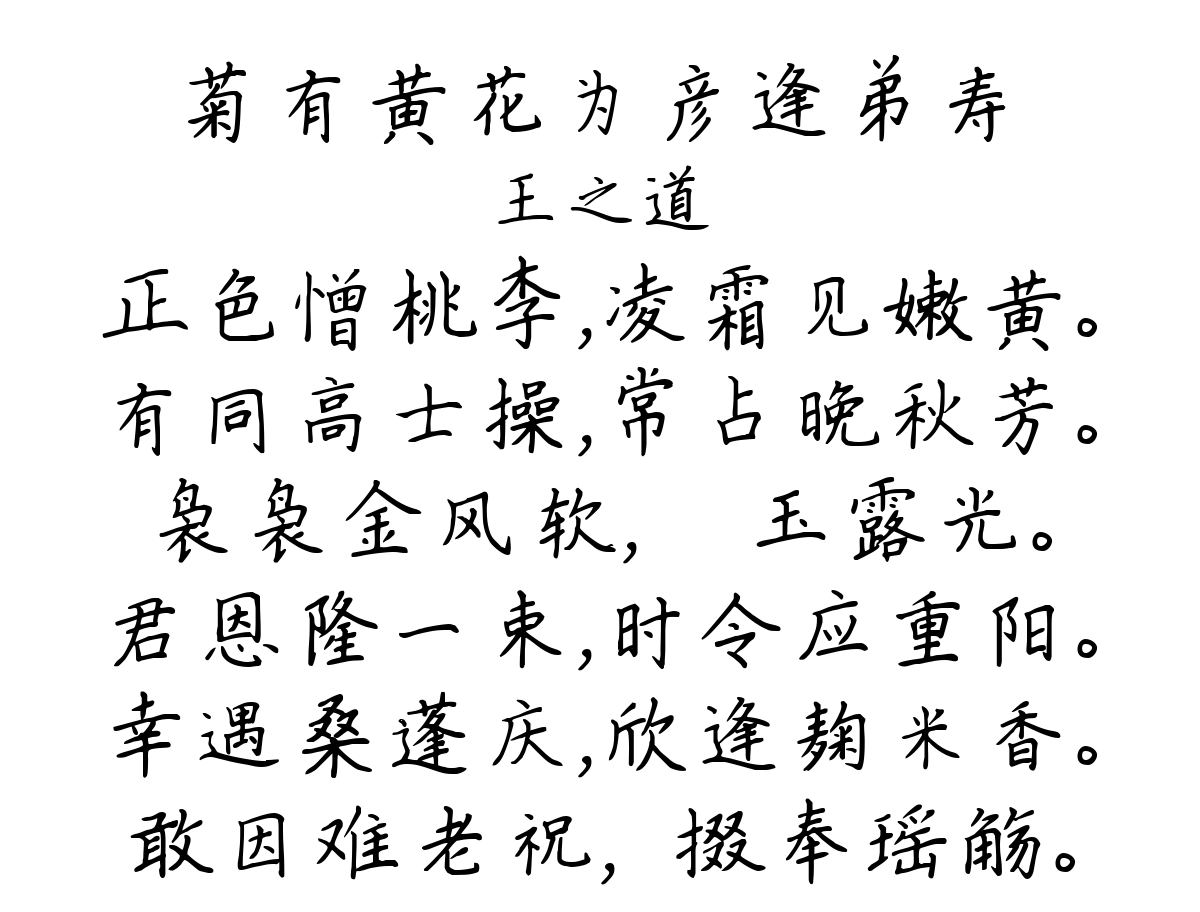 菊有黄花为彦逢弟寿
王之道
正色憎桃李,凌霜见嫩黄。
有同高士操,常占晚秋芳。
袅袅金风软, 玉露光。
君恩隆一束,时令应重阳。
幸遇桑蓬庆,欣逢麹米香。
敢因难老祝,掇奉瑶觞。